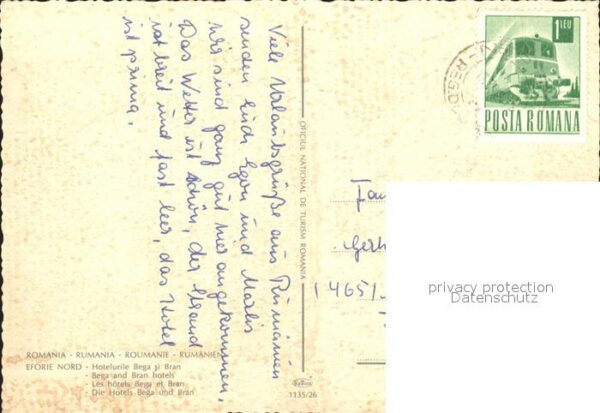 Viele Urlaubsgrüße aus Rumänien
senden Euch Egon und Marlis
wir sind ganz gut hier angekommen,
Das Wetter ist schön, der Strand
ist breit und fast leer, das Hotel
ist prima.
OFICIUL NATIONAL DE TURISM ROMANIA
1 LEU
POSTA ROMANA
Fam
Gerh
1465
privacy protection
Datenschutz
ROMANIA - RUMANIA - ROUMANIE - RUMÄNIEN
EFORIE NORD - Hotelurile Bega și Bran
Bega and Bran hotels
Les hôtels Bega et Bran
Die Hotels Bega und Bran
1135/26